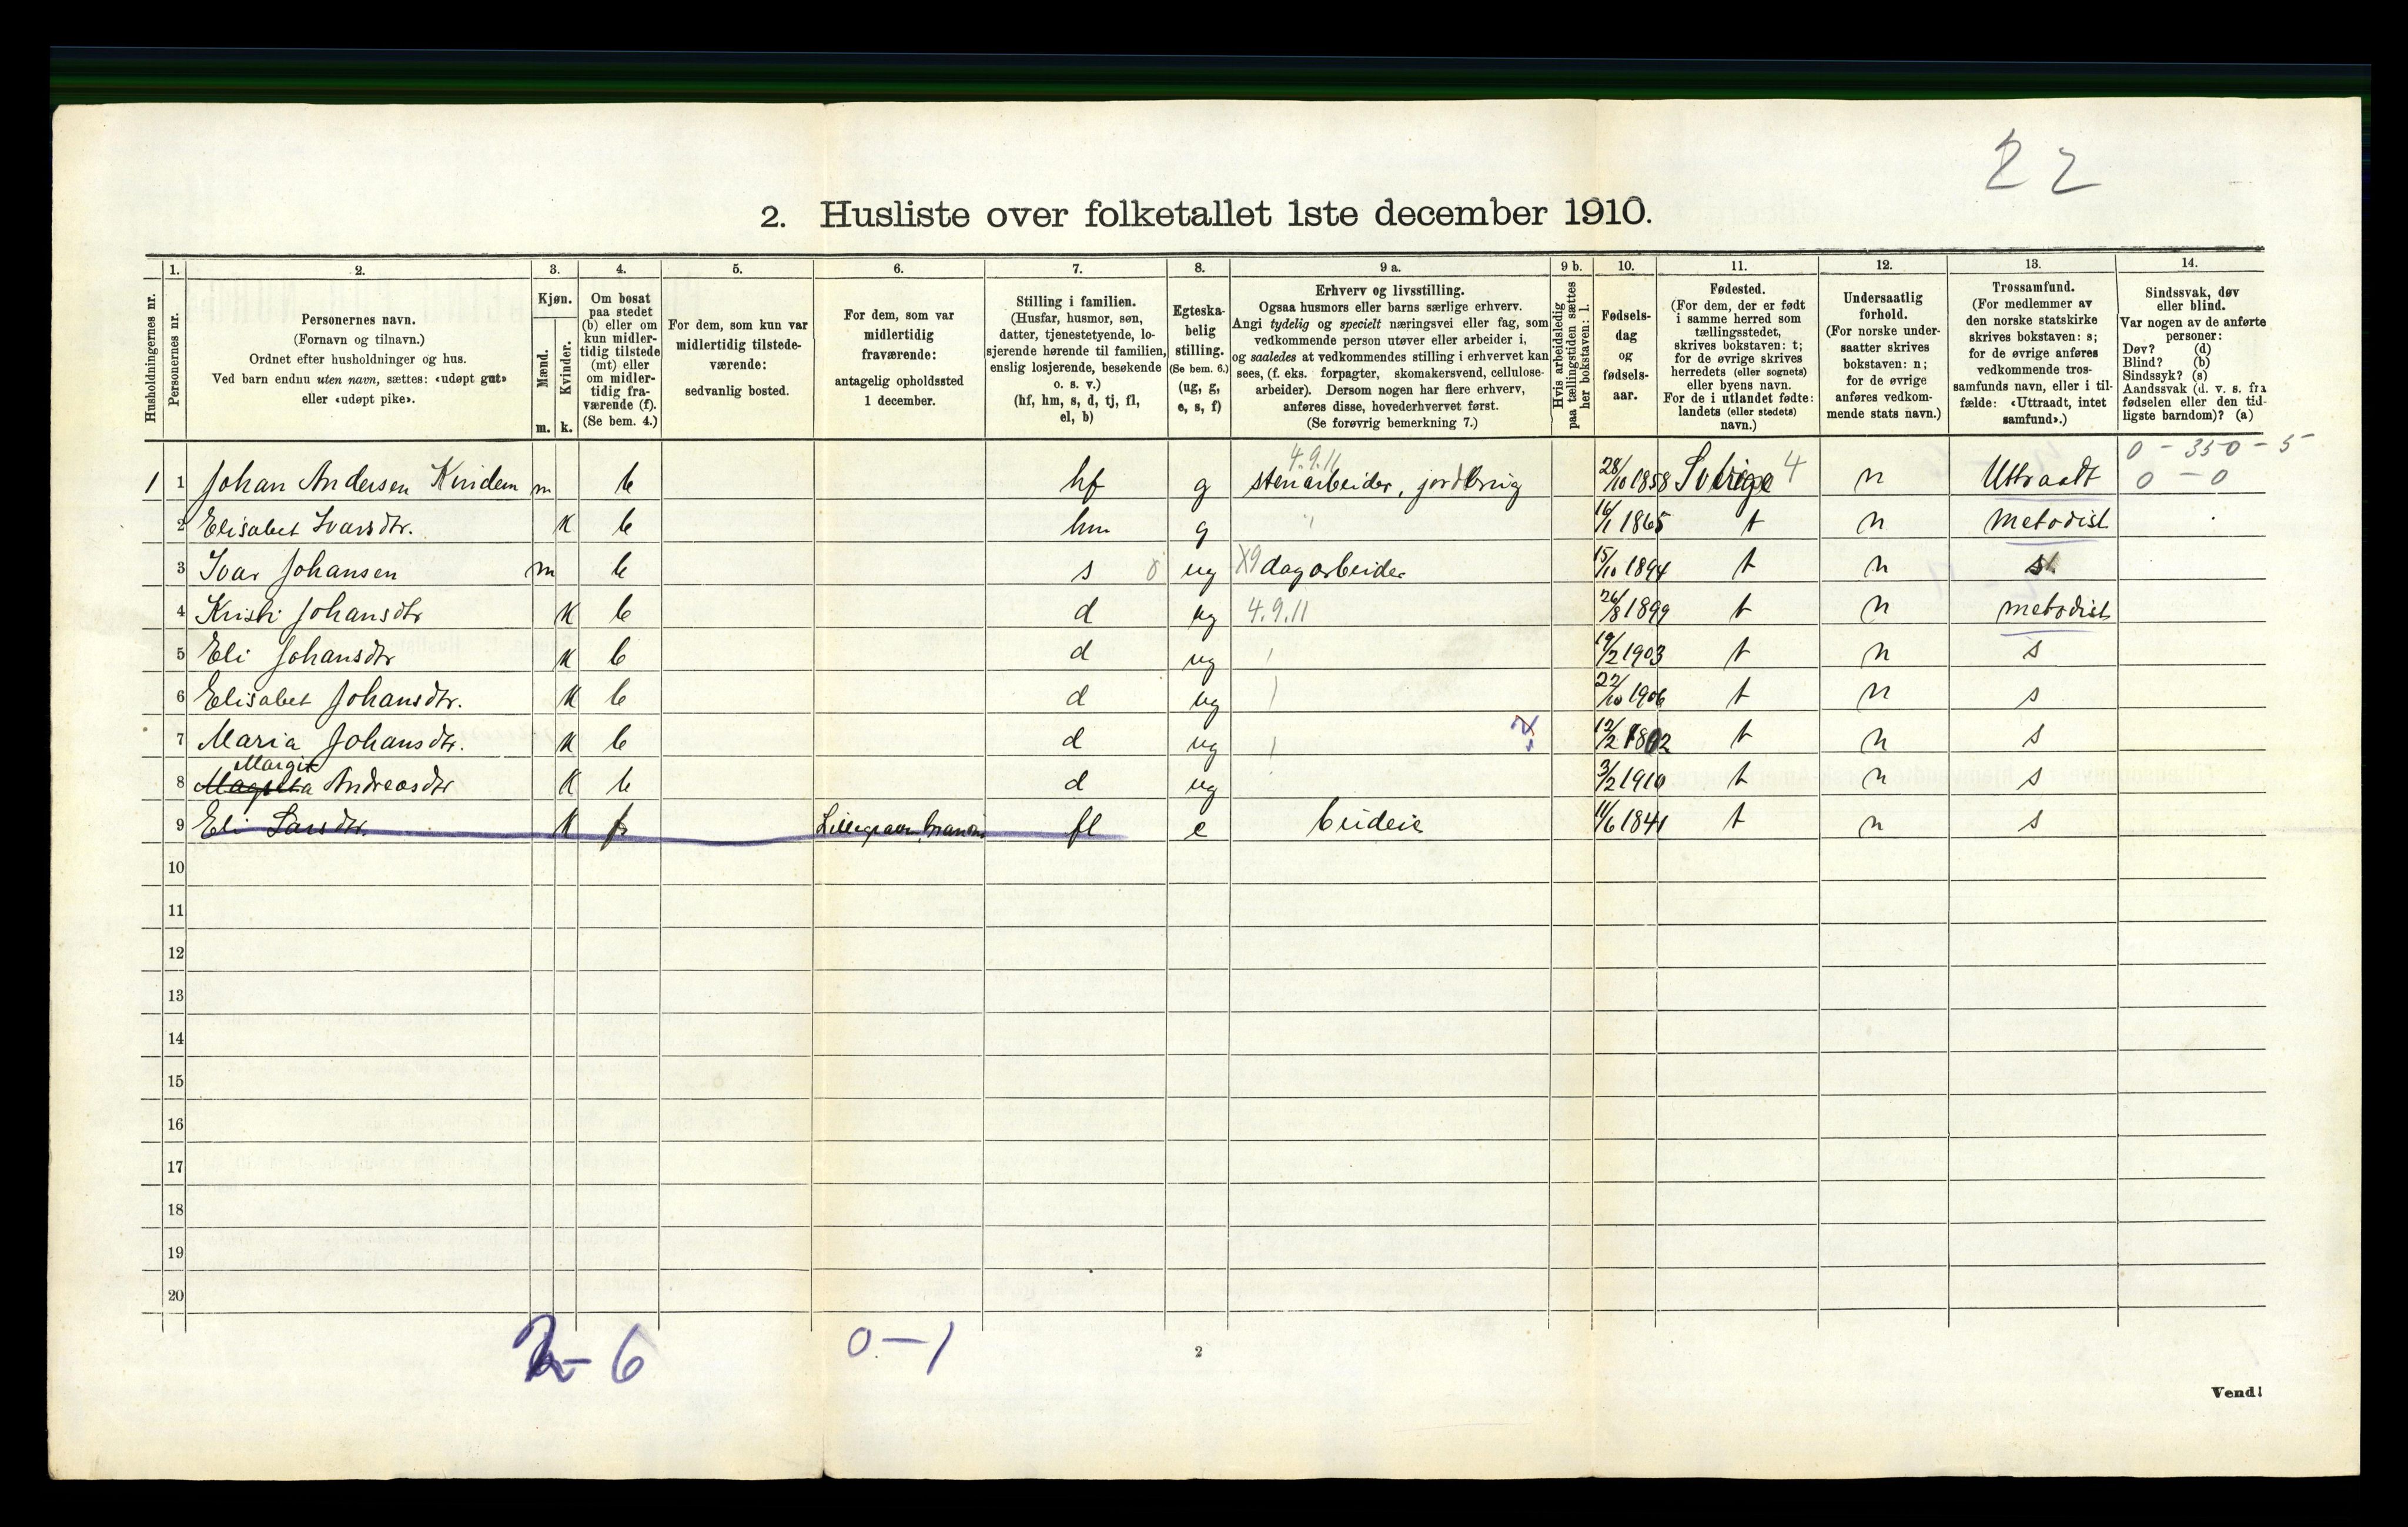 22
2. Husliste over folketallet 1ste december 1910.
1. 2. 3. 4. 5. 6. 7. 8. 9 a. 9 b. 10. 11. 12. 13. 14.
Husholdningernes nr.
Personernes nr.
Personernes navn.
(Fornavn og tilnavn.)
Ordnet efter husholdninger og hus.
Ved barn endnu uten navn, sættes: «udøpt gut»
eller «udøpt pike».
Kjøn.
Mænd.
Kvinder.
m. k.
Om bosat
paa stedet
(b) eller om
kun midler-
tidig tilstede
(mt) eller
om midler-
tidig fra-
værende (f).
(Se bem. 4.)
For dem, som kun var
midlertidig tilstede-
værende:
sedvanlig bosted.
For dem, som var
midlertidig
fraværende:
antagelig opholdssted
1 december.
Stilling i familien.
(Husfar, husmor, søn,
datter, tjenestetyende, lo-
sjerende hørende til familien,
enslig losjerende, besøkende
o. s. v.)
(hf, hm, s, d, tj, fl,
el, b)
Egteska-
belig
stilling.
(Se bem. 6.)
(ug, g,
e, s, f)
Erhverv og livsstilling.
Ogsaa husmors eller barns særlige erhverv.
Angi tydelig og specielt næringsvei eller fag, som
vedkommende person utøver eller arbeider i,
og saaledes at vedkommendes stilling i erhvervet kan
sees, (f. eks. forpagter, skomakersvend, cellulose-
arbeider). Dersom nogen har flere erhverv,
anføres disse, hovederhvervet først.
(Se forøvrig bemerkning 7.)
Hvis arbeidsledig
paa tællingstiden sættes
her bokstaven: l.
Fødsels-
dag
og
fødsels-
aar.
Fødested.
(For dem, der er født
i samme herred som
tællingsstedet,
skrives bokstaven: t;
for de øvrige skrives
herredets (eller sognets)
eller byens navn.
For de i utlandet fødte:
landets (eller stedets)
navn.)
Undersaatlig
forhold.
(For norske under-
saatter skrives
bokstaven: n;
for de øvrige
anføres vedkom-
mende stats navn.)
Trossamfund.
(For medlemmer av
den norske statskirke
skrives bokstaven: s;
for de øvrige anføres
vedkommende tros-
samfunds navn, eller i til-
fælde: «Uttraadt, intet
samfund».)
Sindssvak, døv
eller blind.
Var nogen av de anførte
personer:
Døv? (d)
Blind? (b)
Sindssyk? (s)
Aandssvak (d. v. s. fra
fødselen eller den tid-
ligste barndom)? (a)
4.9.11 0 - 350 - 5
1 1 Johan Andersen Kvidem m b hf g stenarbeider, jordbrug 28/10 1858 Sverige 4 n Uttraadt 0 - 0
2 Elisabet Ivarsdtr. k b hm g 16/1 1865 t n metodist
3 Ivar Johansen m b s ug X9 dagarbeider 15/10 1894 t n s
4 Kristi Johansdtr k b d ug 4.9.11 26/8 1899 t n metodist
5 Eli Johansdtr k b d ug 19/2 1903 t n s
6 Elisabet Johansdtr. k b d ug 22/10 1906 t n s
7 Maria Johansdtr. k b d ug 12/2 t n s
Margit
8 Andreasdtr k b d ug 3/2 1910 t n s
9 Eli Larsdtr. k f fl e budeie 11/6 1841 t n s
10
11
12
13
14
15
16
17
18
19
20
2-6 0-1
2
Vend!